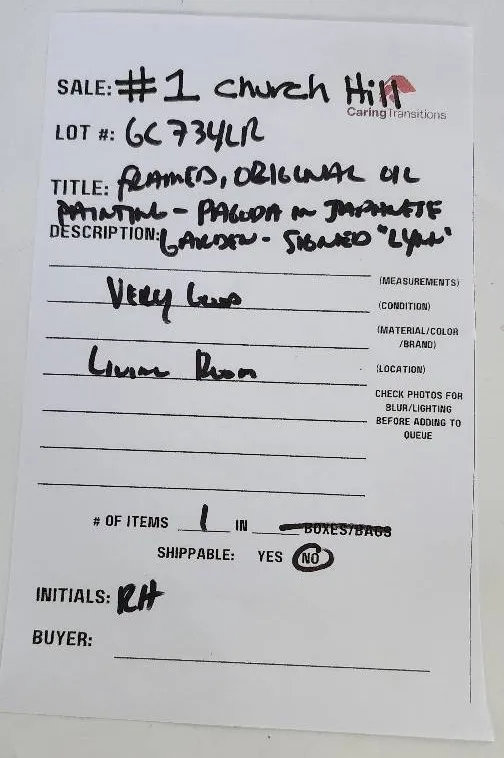 SALE: #1 Church Hill
CaringTransitions
LOT #: GC734LR
TITLE: FRAMED, ORIGINAL OIL
PAINTING - PAGODA IN JAPANESE
DESCRIPTION: GARDEN - SIGNED "LYNN"
(MEASUREMENTS)
VERY GOOD (CONDITION)
(MATERIAL/COLOR
/BRAND)
LIVING ROOM (LOCATION)
CHECK PHOTOS FOR
BLUR/LIGHTING
BEFORE ADDING TO
QUEUE
# OF ITEMS 1 IN BOXES/BAGS
SHIPPABLE: YES NO
INITIALS: RH
BUYER: